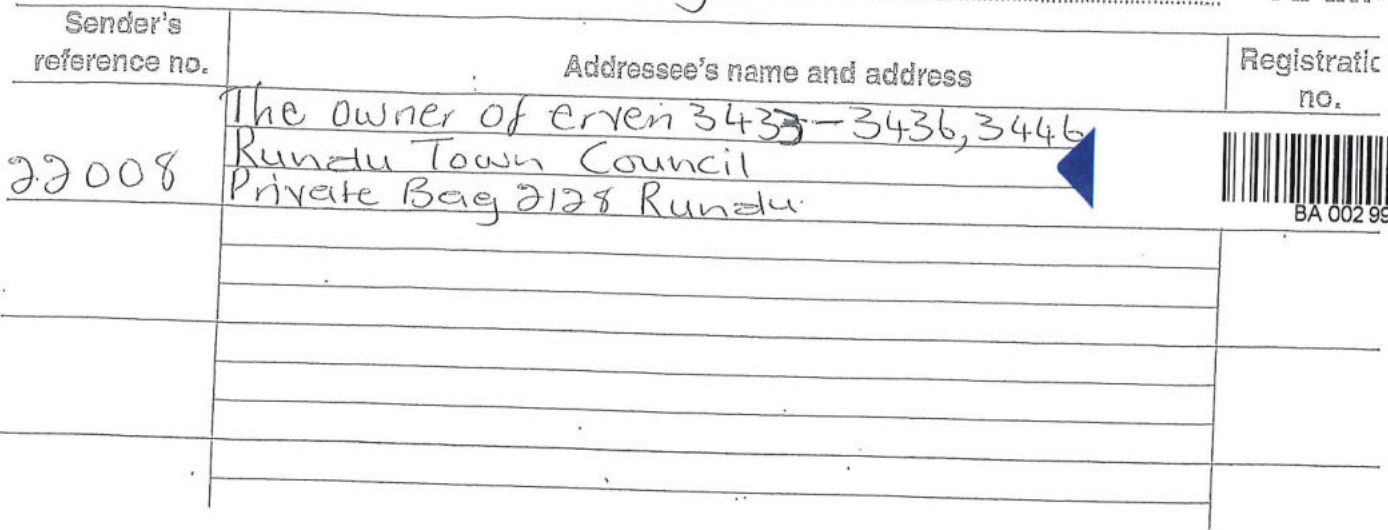 Sender's
reference no.
Addressee's name and address
Registratio
no.
22008
The owner of erven 3433-3436, 3446
Rundu Town Council
Private Bag 2128 Rundu
BA 002 99